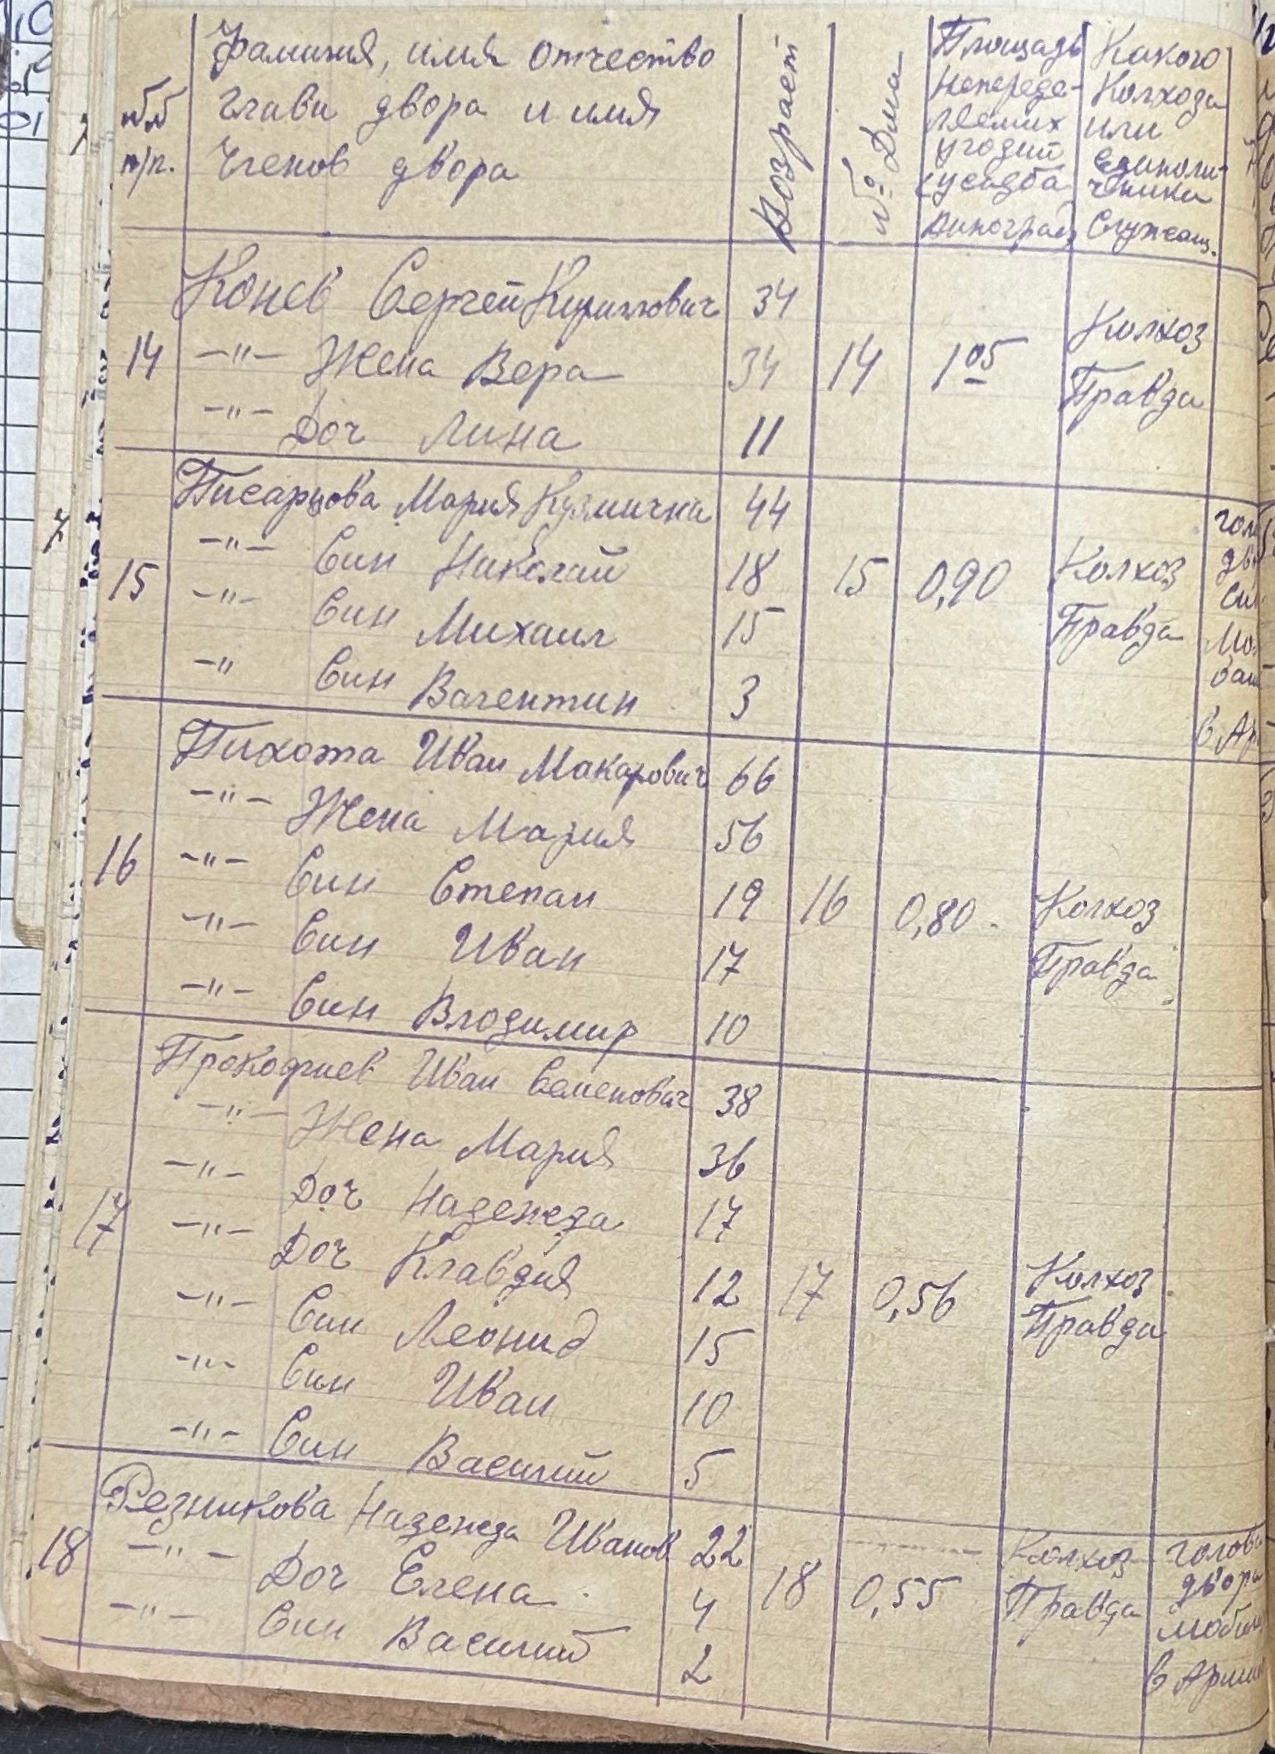 №№ п/п. Фамилия, имя отчество глави двора и имя членов двора Возраст № Дма Площадь непереде-ляемих угодий (усадба виноград) Какого Колхоза или единоли-чники Служащ.
Конев Сергей Кириллович 34
14 -"- Жена Вера 34 14 1 05 Колхоз Правда
-"- Доч Лина 11
Писарцова Мария Кузминична 44
-"- Син Николай 18
15 -"- Син Михаил 15 15 0,90 Колхоз Правда
-" Син Валентин 3
в Ар
Пихота Иван Макарович 66
-"- Жена Мария 56
16 -"- Син Степан 19 16 0,80 Колхоз Правда
-"- Син Иван 17
-"- Син Владимир 10
Прокофиев Иван Семенович 38
-"- Жена Мария 36
-"- Доч Надежда 17
17 -"- Доч Клавдия 12 17 0,56 Колхоз Правда
-"- Син Леонид 15
-"- Син Иван 10
-"- Син Василий 5
Резникова Надежда Иванов 22
18 -"- Доч Елена 4 18 0,55 Колхоз Правда голова двора мобил в Армию
-"- Син Василий 2